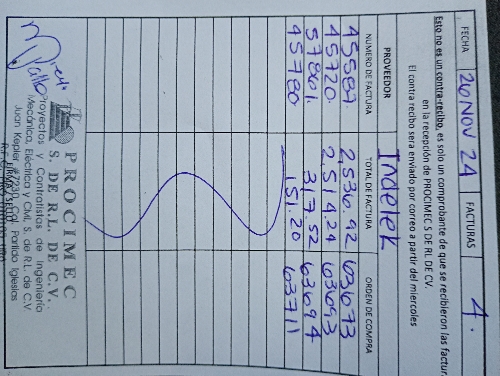 FECHA 26 NOV 24 FACTURAS 4.
Esto no es un contra-recibo, es solo un comprobante de que se recibieron las factur
en la recepción de PROCIMEC S DE RL DE CV.
El contra recibo sera enviado por correo a partir del miercoles
PROVEEDOR Indelek
NUMERO DE FACTURA TOTAL DE FACTURA ORDEN DE COMPRA
45587. 2,536.92 63673
45720. 2,514.24 63693
57801. 317.52 63694
45780 151.20 63711
PROCIMEC
S. DE R.L. DE C.V.
Proyectos y Contratistas de Ingeniería
Mecánica, Eléctrica y Civil, S. de R.L. de C.V
Juan Kepler #7230, Col. Partido Iglesias
FIRMA Y SELLO